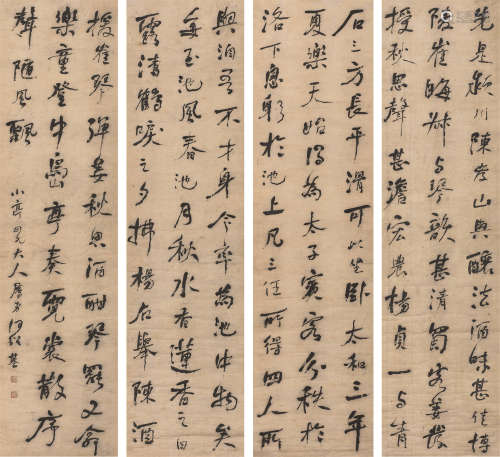 先是潁川陳孝山與釀法酒味甚佳博
陵崔晦叔与琴韻甚清蜀客姜發
授秋思聲甚澹宏農楊貞一与青
石三方長平滑可以坐臥太和三年
夏樂天始得為太子賓客分秩於
洛下息躬於池上凡三任所得四人所
與洎吾不才身今率為池中物矣
每至池風春池月秋水香蓮香之旦
露清鶴唳之夕拂楊石舉陳酒
援崔琴彈姜秋思酒酣琴罷又命
樂童登中島亭奏霓裳散序
聲隨風飄
小亭四兄大人屬 弟何紹基